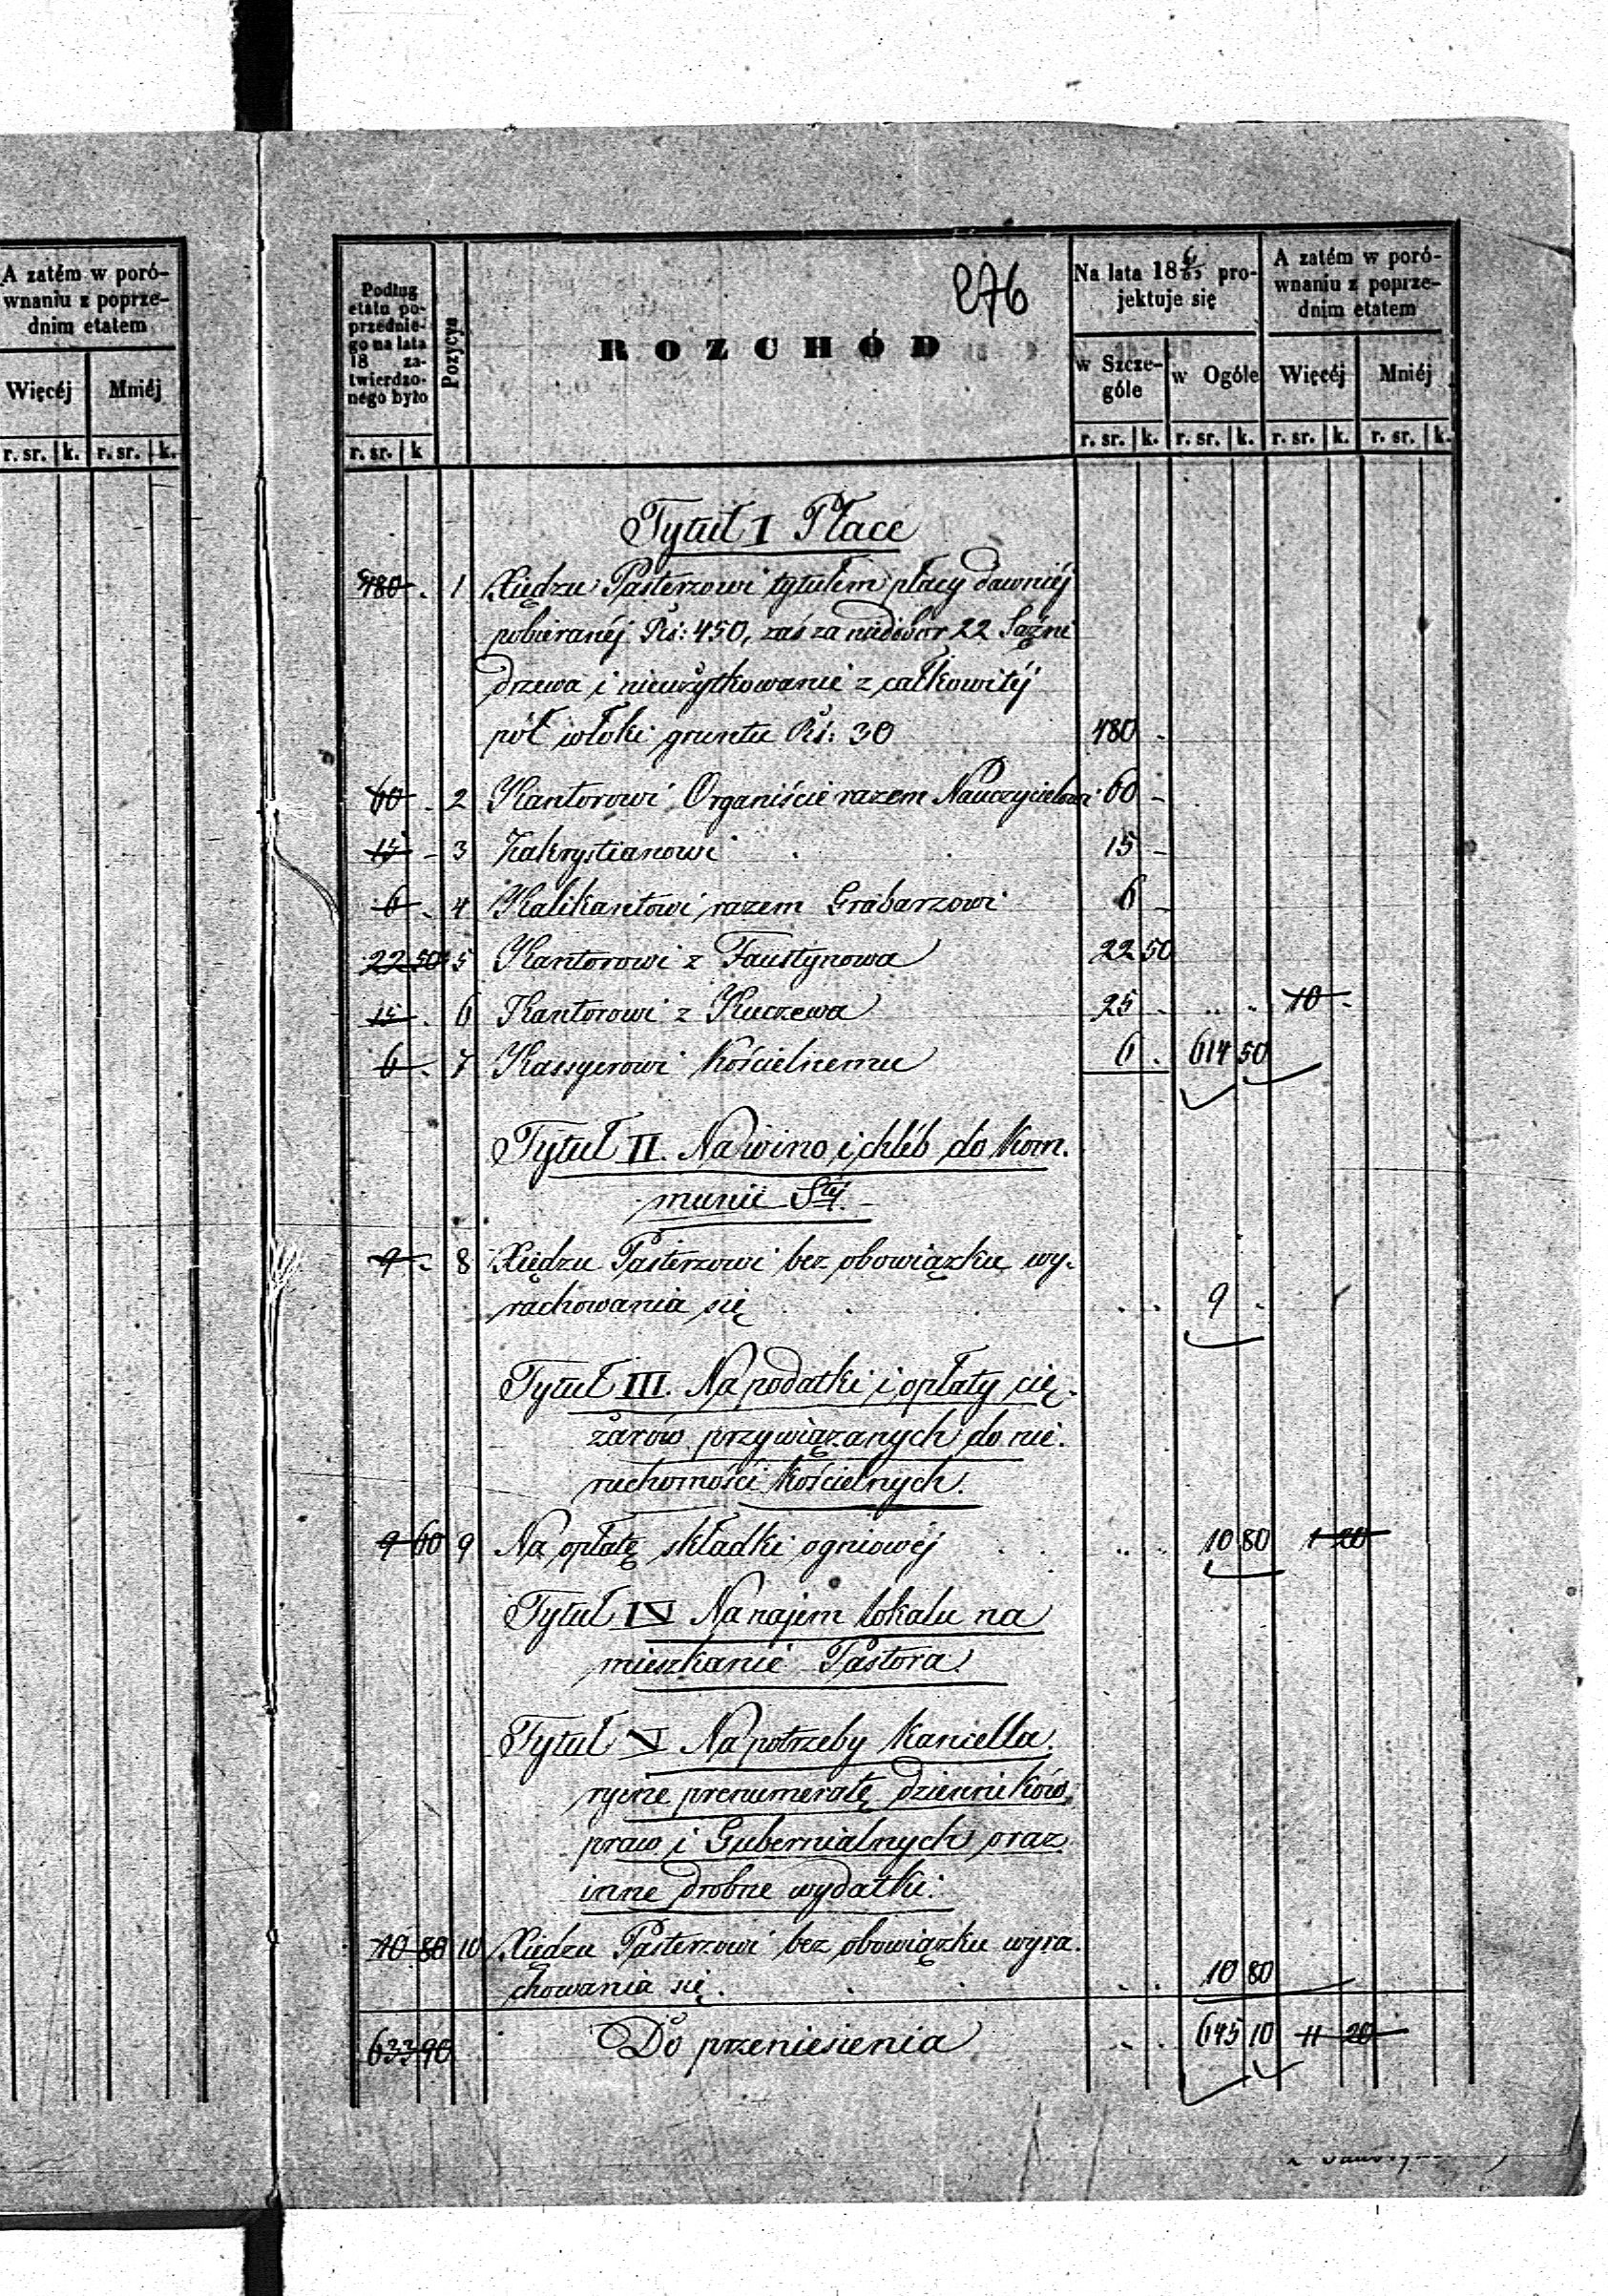 A zatém w poró-
wnaniu z poprze-
dnim etatem
Więcéj Mniéj
r. sr. k. r. sr. k.
276
Podług
etatu po-
przednie-
go na lata
18 za-
twierdzo-
nego było
r. sr. k
Pozycya
ROZCHÓD
Na lata 18 pro-
jektuje się
w Szcze-
góle
w Ogóle
r. sr. k. r. sr. k.
A zatém w poró-
wnaniu z poprze-
dnim etatem
Więcéj Mniéj
r. sr. k. r. sr. k.
Tytuł I Płace
480 - 1 Xiędzu Pasterzowi tytułem płacy dawniéj
pobieranéj Rs: 450, zaś za niedobór 22 Sążni
drzewa i nieużytkowanie z całkowitéj
pół włoki gruntu Rs: 30 480 -
60 - 2 Kantorowi Organiście razem Nauczycielowi 60 -
15 - 3 Zakrystianowi 15 -
6 - 4 Kalikantowi razem Grabarzowi 6 -
22 50 5 Kantorowi z Faustynowa 22 50
15 - 6 Kantorowi z Kuczewa 25 - 10 -
6 - 7 Kassyerowi Kościelnemu 6 - 614 50
Tytuł II. Na wino i chléb do Kom-
munii Stéj.
9 - 8 Xiędzu Pasterzowi bez obowiązku wy-
rachowania się 9 -
Tytuł III. Na podatki i opłaty cię-
żarów przywiązanych do nie-
ruchomości Kościelnych.
9 60 9 Na opłatę składki ogniowéj 10 80 1 20
Tytuł IV Na najem lokalu na
mieszkanie Pastora.
Tytuł V Na potrzeby Kancella-
ryjne prenumeratę dzienników
praw i Gubernialnych oraz
inne drobne wydatki.
10 80 10 Xiędzu Pasterzowi bez obowiązku wyra-
chowania się. 10 80
633 90 Do przeniesienia 645 10 11 20